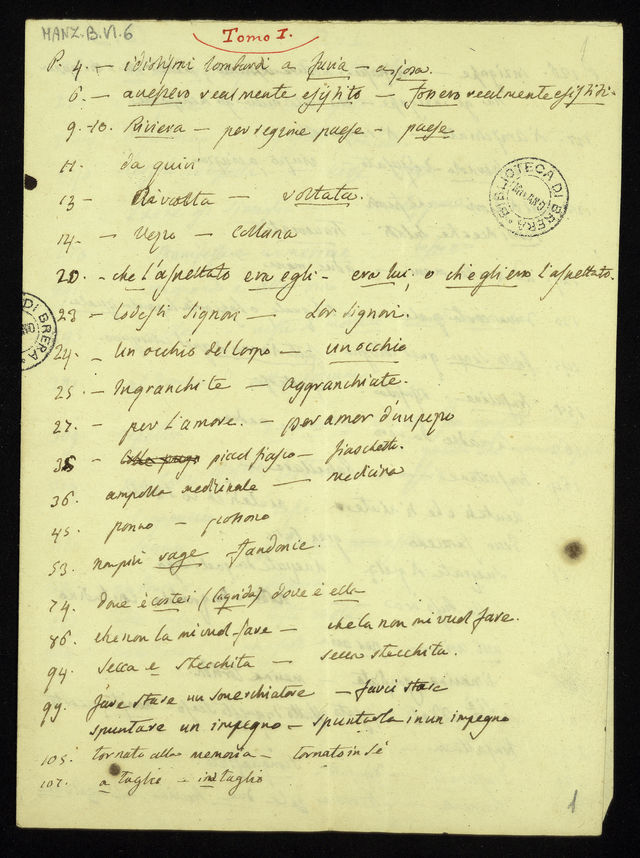 MANZ.B.VI.6
Tomo I.
1
P. 4. — idiotismi lombardi a furia — a josa.
6. — avessero realmente esistito — fossero realmente esistiti.
9.-10. Riviera — per regime paese — paese
11. da quivi
13 — Rivolta — voltata.
14. — Vezzo — Collana
20. - che l'aspettato era egli - era lui, o ch'egli era l'aspettato.
23 — Codesti Signori — Lor Signori.
24. — Un occhio del corpo — un occhio
25. — Ingranchite — aggranchiate.
27. — per l'amore. — per amor d'un pezzo
35 — piccol fiasco — fiaschetto.
36. ampolla medicinale — medicina
45. ponno — possono
53. non più vage fandonie.
74. dove è costei (Agnese) dove è ella
86. che non la mi vuol fare — che la non mi vuol fare.
94. Secca e stecchita — secca stecchita.
99. fare stare un soverchiatore — farci stare
spuntare un impegno — spuntarla in un impegno
105. tornato alla memoria — tornato in sé
107. a taglio — in taglio
1
BIBLIOTECA DI BRERA * MILANO
DI BRERA